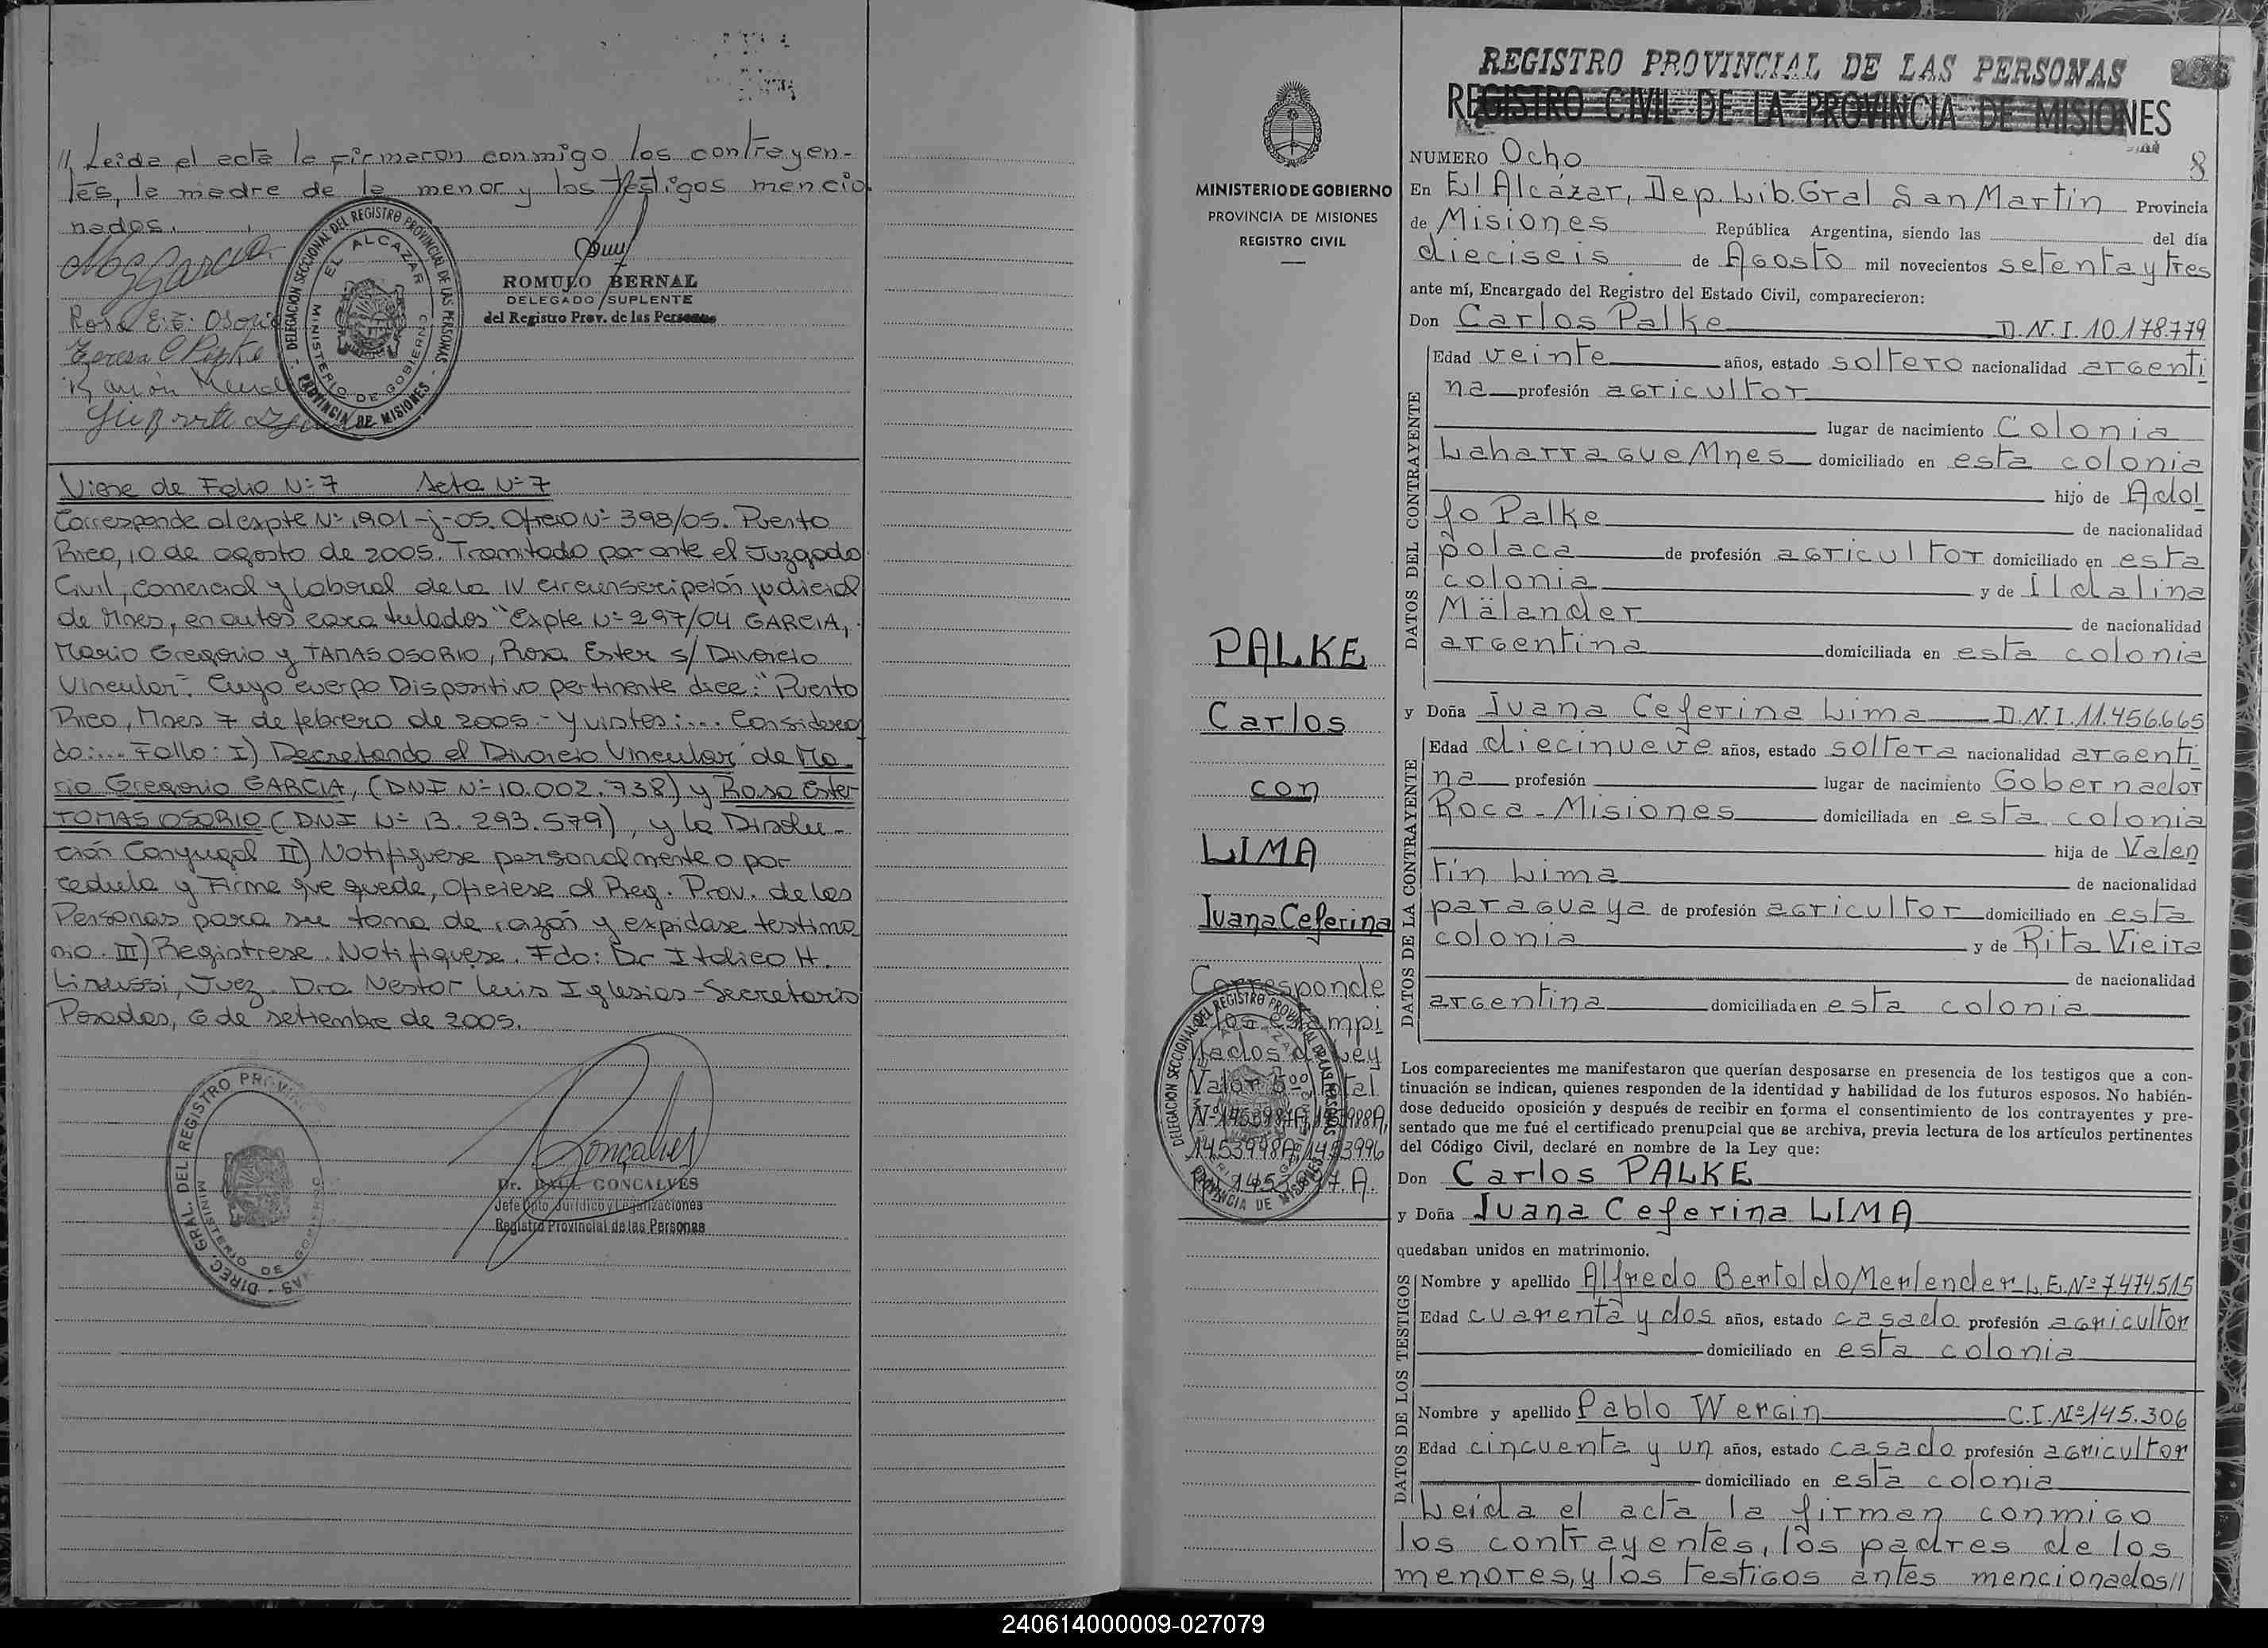 // Leida el acta la firmaron conmigo los contrayen-
tes, la madre de la menor y los testigos mencio
nados.
Rosa E. E. Osorio
ROMULO BERNAL
DELEGADO SUPLENTE
del Registro Prov. de las Personas
DELEGACION SECCIONAL DEL REGISTRO PROVINCIAL DE LAS PERSONAS - PROVINCIA DE MISIONES -
EL ALCAZAR
MINISTERIO DE GOBIERNO
Viene de Folio Nº 7 Acta Nº 7
Corresponde al expte Nº 1901-j-05. Oficio Nº 398/05. Puerto
Rico, 10 de agosto de 2005. Tramitado por ante el Juzgado
Civil, Comercial y Laboral de la IV circunscripción judicial
de Mnes, en autos caratulados "Expte Nº 297/04 GARCIA,
Mario Gregorio y TAMAS OSORIO, Rosa Ester s/ Divorcio
Vincular". Cuyo cuerpo Dispositivo pertinente dice: "Puerto
Rico, Mnes 7 de febrero de 2005.- Y vistos:... Consideran
do:... Fallo: I) Decretando el Divorcio Vincular de Ma
rio Gregorio GARCIA, (DNI Nº 10.002.738) y Rosa Ester
TOMAS OSORIO (DNI Nº 13.293.579), y la Disolu-
ción Conyugal II) Notifiquese personalmente o por
cedula y Firme que quede, Oficiese al Reg. Prov. de las
Personas para su toma de razón y expidase testimo
nio. III) Registrese. Notifiquese. Fdo: Dr Italico H.
Juez. Dra Nestor Luis Iglesias - Secretario
Posadas, 6 de setiembre de 2005.
DIREC. GRAL. DEL REGISTRO
MINISTERIO DE GOBIERNO
Dr. RAUL GONCALVES
Jefe Dpto Jurídico y Legalizaciones
Registro Provincial de las Personas
MINISTERIO DE GOBIERNO
PROVINCIA DE MISIONES
REGISTRO CIVIL
PALKE
Carlos
con
LIMA
Juana Ceferina
Corresponde
REGISTRO PROVINCIAL DE LAS PERSONAS
REGISTRO CIVIL DE LA PROVINCIA DE MISIONES
NUMERO Ocho 8
En El Alcázar, Dep. Lib. Gral San Martín Provincia
de Misiones República Argentina, siendo las del día
dieciseis de Agosto mil novecientos setenta y tres
ante mí, Encargado del Registro del Estado Civil, comparecieron:
DATOS DEL CONTRAYENTE
Don Carlos Palke D.N.I. 10.178.779
Edad veinte años, estado soltero nacionalidad argenti
na profesión agricultor
lugar de nacimiento Colonia
Laharrague Mnes domiciliado en esta colonia
hijo de Adol
fo Palke de nacionalidad
polaca de profesión agricultor domiciliado en esta
colonia y de Ildalina
Mälander de nacionalidad
argentina domiciliada en esta colonia
DATOS DE LA CONTRAYENTE
y Doña Juana Ceferina Lima D.N.I. 11.456.665
Edad diecinueve años, estado soltera nacionalidad argenti
na profesión lugar de nacimiento Gobernador
Roca-Misiones domiciliada en esta colonia
hija de Valen
tín Lima de nacionalidad
paraguaya de profesión agricultor domiciliado en esta
colonia y de Rita Vieira
de nacionalidad
argentina domiciliada en esta colonia
Los comparecientes me manifestaron que querían desposarse en presencia de los testigos que a con-
tinuación se indican, quienes responden de la identidad y habilidad de los futuros esposos. No habién-
dose deducido oposición y después de recibir en forma el consentimiento de los contrayentes y pre-
sentado que me fué el certificado prenupcial que se archiva, previa lectura de los artículos pertinentes
del Código Civil, declaré en nombre de la Ley que:
Don Carlos PALKE
y Doña Juana Ceferina LIMA
quedaban unidos en matrimonio.
DATOS DE LOS TESTIGOS
Nombre y apellido Alfredo Bertoldo Merlender L.E.Nº 7474.515
Edad cuarenta y dos años, estado casado profesión agricultor
domiciliado en esta colonia
Nombre y apellido Pablo Wergin C.I.Nº 145.306
Edad cincuenta y un años, estado casado profesión agricultor
domiciliado en esta colonia
Leida el acta la firman conmigo
los contrayentes, los padres de los
menores, y los testigos antes mencionados//
240614000009-027079